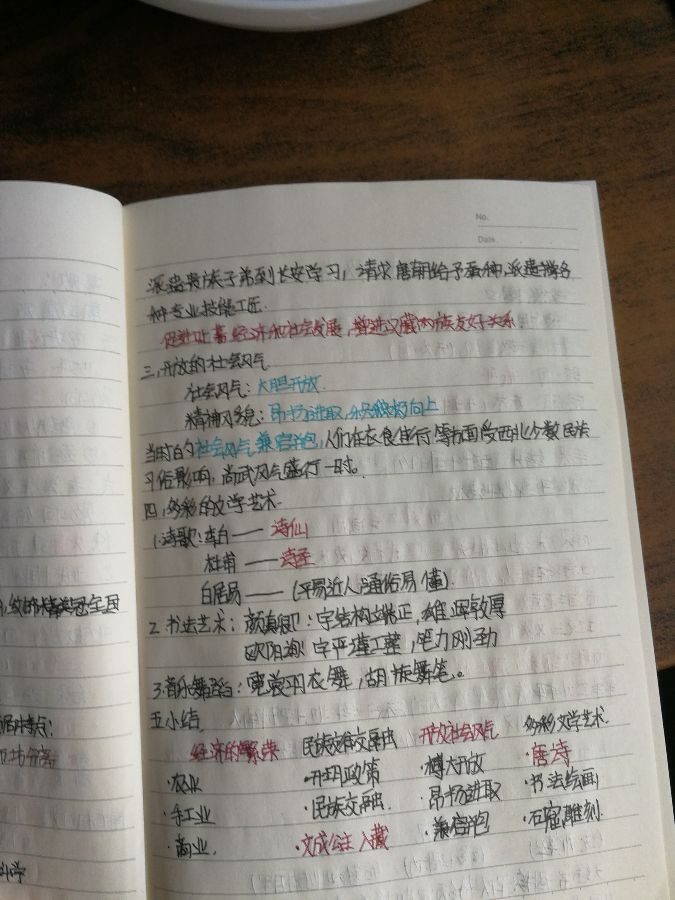 No.
Date.
派遣贵族子弟到长安学习，请求唐朝给予蚕种，派遣掌各
种专业技能工匠.
促进吐蕃经济和社会发展，增进汉藏两族友好关系
三、开放的社会风气
社会风气：大胆开放.
精神风貌：昂扬进取，积极向上
当时的社会风气兼容并包，人们在衣食住行等方面受西北少数民族
习俗影响，尚武风气盛行一时。
四、多彩的文学艺术.
1.诗歌：李白——诗仙
杜甫——诗圣
白居易——（平易近人，通俗易懂）.
2.书法艺术：颜真卿：字结构端正，雄浑敦厚
欧阳询：字严谨工整，笔力刚劲
3.音乐舞蹈：霓裳羽衣舞，胡旋舞等。
五小结.
经济的繁荣 民族交往交融 开放社会风气 多彩文学艺术.
·农业 ·开明政策 ·博大开放 ·唐诗
·手工业 ·民族交融. ·昂扬进取 ·书法绘画
·商业. ·文成公主入藏 ·兼容并包 ·石窟雕刻.